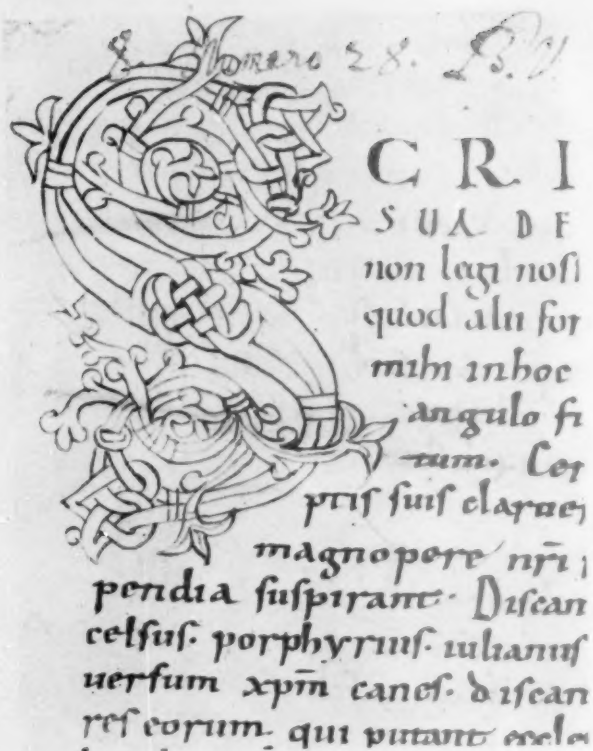 Numero 28. B.V.
S
CRI
SUA DE
non legi nosſ
quod alii for
mihi in hoc
angulo fi
tum. Cer
ptis ſuiſ claruer
magnopere nr̄i
pendia ſuſpirant. Diſcan
celſuſ. porphyriuſ. iulianuſ
uerſum xp̄m caneſ. diſcan
reſ eorum. qui putant eccle